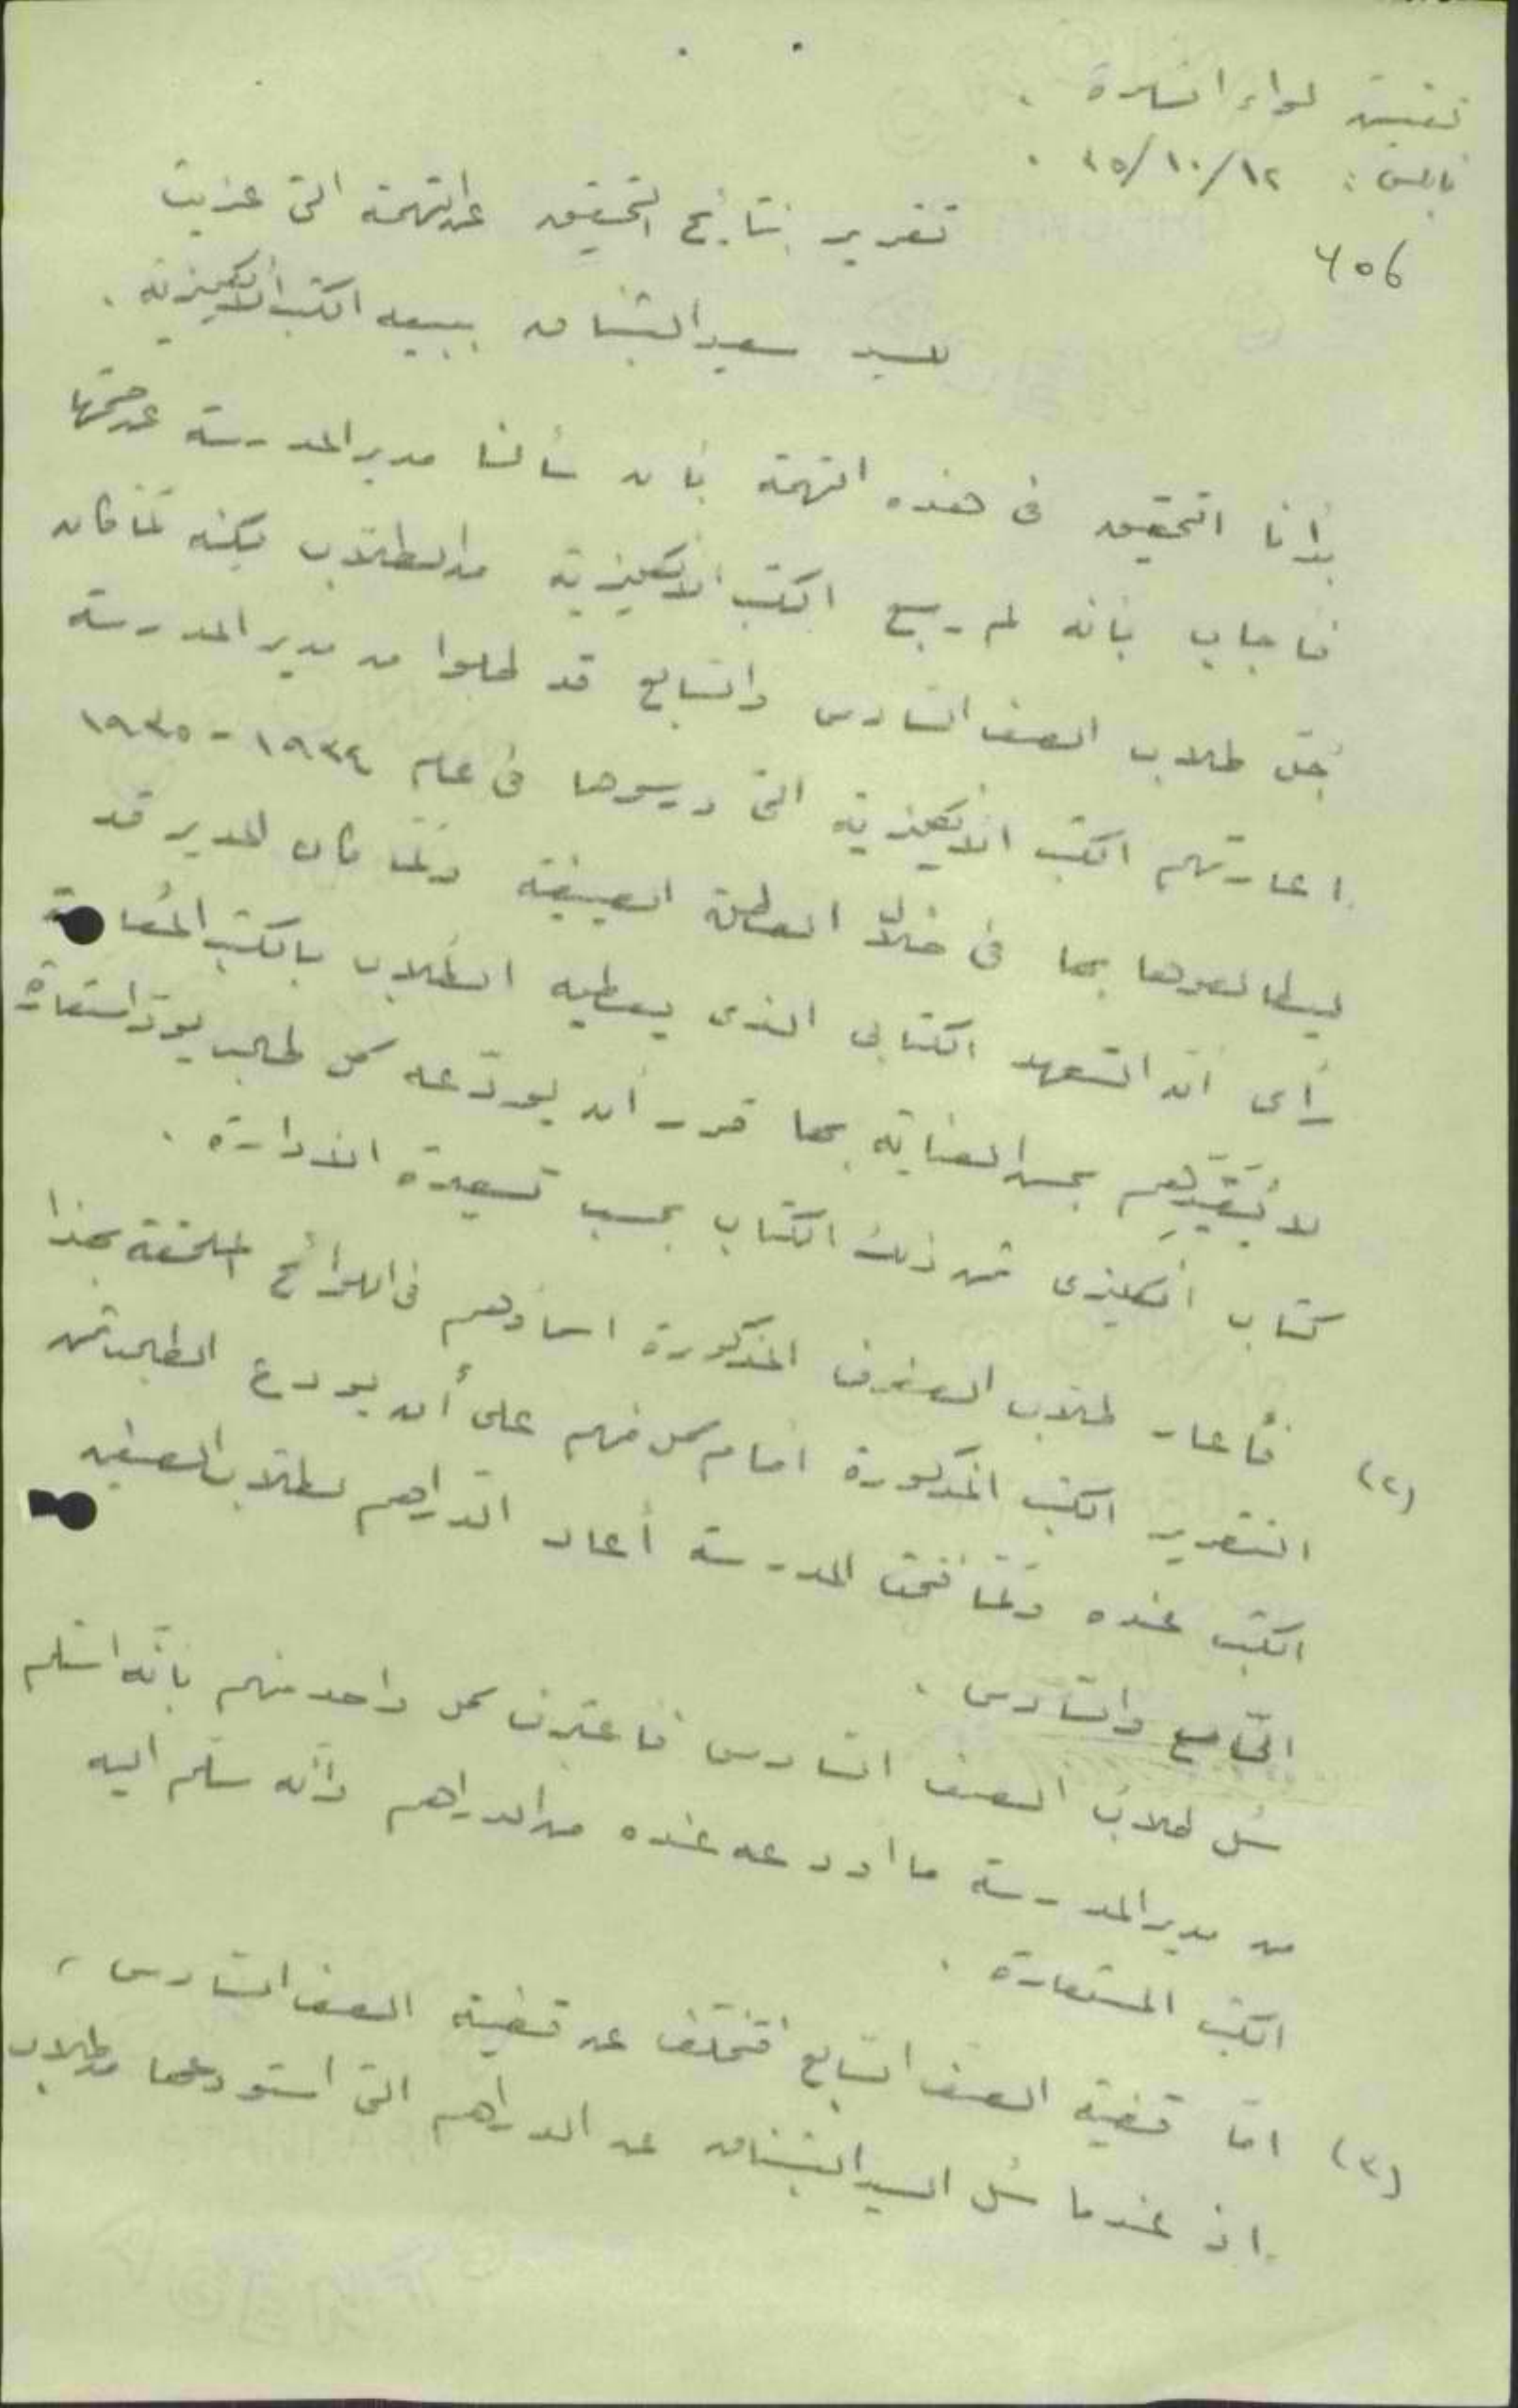 تفتيش لواء السامرة .
نابلس : ١٢/١٠/٣٥ .
٦٥٦
تقرير بنتايج التحقيق عن التهمة التي عزيت
للسيد سعيد البشناق ببيعه الكتب الانكليزية .
بدأنا التحقيق في هذه التهمة بأن سألنا مدير المدرسة عن صحتها
فاجاب بانه لم يبع الكتب الانكليزية من الطلاب لكنه لمّا كان
جلّ طلاب الصف السادس والسابع قد طلبوا من مدير المدرسة
اعارتهم الكتب الانكليزية التي درسوها في عام ١٩٣٤ - ١٩٣٥
ليطالعوها بها في خلال العطلة الصيفية ولمّا كان المدير قد
رأى انّ التعهد الكتابي الذي يعطيه الطلاب بالكتب المُعارة
لا يُقيّدهم بحسن العناية بها قرر أن يودّعه كل طالب يودّ استعارة
كتاب انكليزي ثمن ذلك الكتاب بحسب تسعيرة الادارة .
(٢) فأعار طلاب الصفوف المذكورة اسماؤهم في اللوائح الملحقة بهذا
التقرير الكتب المذكورة امام كل منهم على أن يودع الطالب ثمن
الكتب عنده ولمّا فتحت المدرسة أعاد الدراهم لطلاب الصفين
الخامس والسادس .
سُئل طلاب الصف السادس فاعترف كل واحد منهم بانّه استلم
من مدير المدرسة ما اودعه عنده من الدراهم وانّه سلّم اليه
الكتب المستعارة .
(٣) امّا قضية الصف السابع فتختلف عن قضية الصف السادس ،
اذ عندما سُئل السيد البشناق عن الدراهم التي استودعها من طلاب